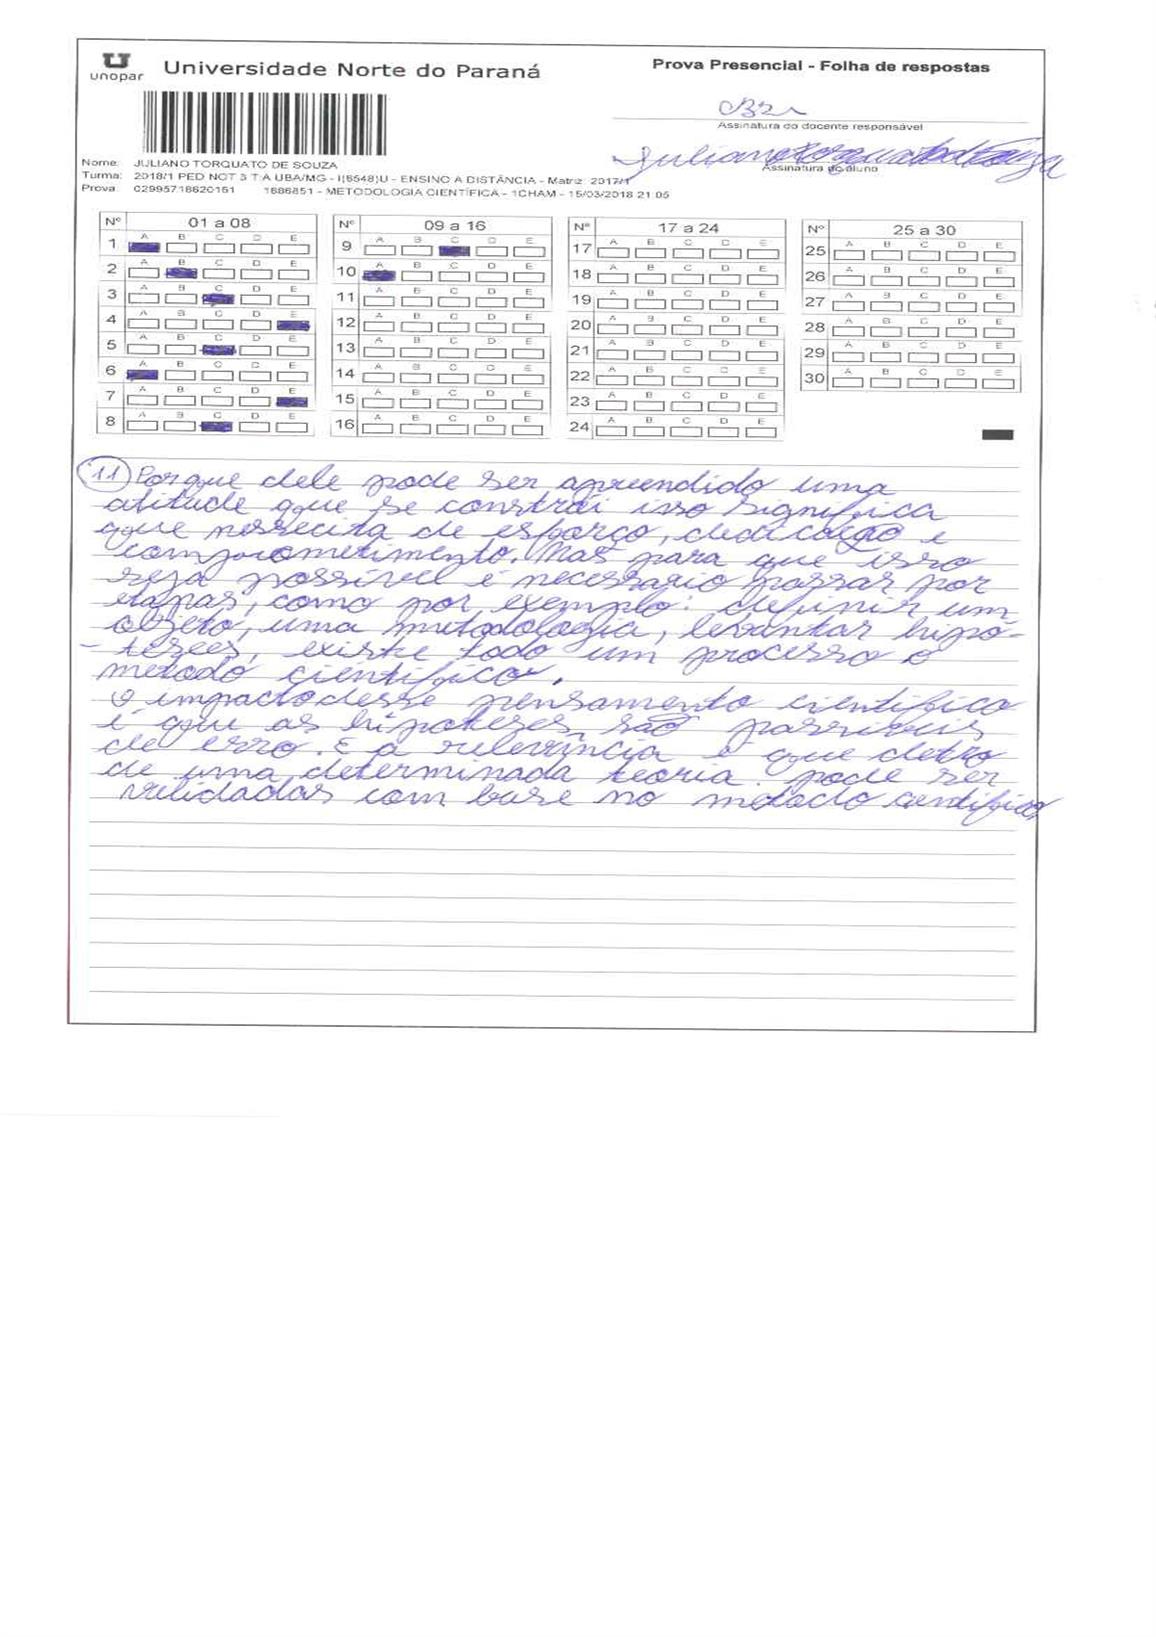 unopar Universidade Norte do Paraná
Prova Presencial - Folha de respostas
Assinatura do docente responsável
Juliano Torquato de Souza
Assinatura do aluno
Nome: JULIANO TORQUATO DE SOUZA
Turma: 2018/1 PED NOT 3 T A UBA/MG - I(6548)U - ENSINO A DISTÂNCIA - Matriz: 2017/1
Prova: 02995718620161 1686851 - METODOLOGIA CIENTÍFICA - 1CHAM - 15/03/2018 21:05
Nº 01 a 08
1 A B C D E
2 A B C D E
3 A B C D E
4 A B C D E
5 A B C D E
6 A B C D E
7 A B C D E
8 A B C D E
Nº 09 a 16
9 A B C D E
10 A B C D E
11 A B C D E
12 A B C D E
13 A B C D E
14 A B C D E
15 A B C D E
16 A B C D E
Nº 17 a 24
17 A B C D E
18 A B C D E
19 A B C D E
20 A B C D E
21 A B C D E
22 A B C D E
23 A B C D E
24 A B C D E
Nº 25 a 30
25 A B C D E
26 A B C D E
27 A B C D E
28 A B C D E
29 A B C D E
30 A B C D E
11) Porque dele pode ser apreendido uma
atitude que se constrói isso significa
que nessecita de esforço, dedicação e
comprometimento. Mas para que isso
seja possível é necessario passar por
etapas, como por exemplo: definir um
objeto, uma metodologia, levantar hipó-
- tesees, existe todo um processo o
metodo cientifico.
O impacto desse pensamento cientifico
é que as hipoteses são passiveis
de erro. E a relevância é que detro
de uma determinada teoria pode ser
validadas com base no metodo cientifico